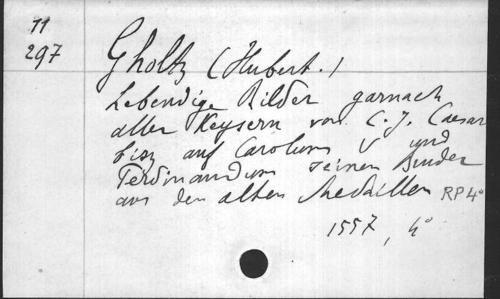 11
297
Gholtz (Hubert.)
Lebendige Bilder garnach
aller Keysern von C. J. Caesar
bisz auf Carolum V und
Ferdinandum seinen Bruder
aus den alten Medaillen RP 4°
1557, 4°